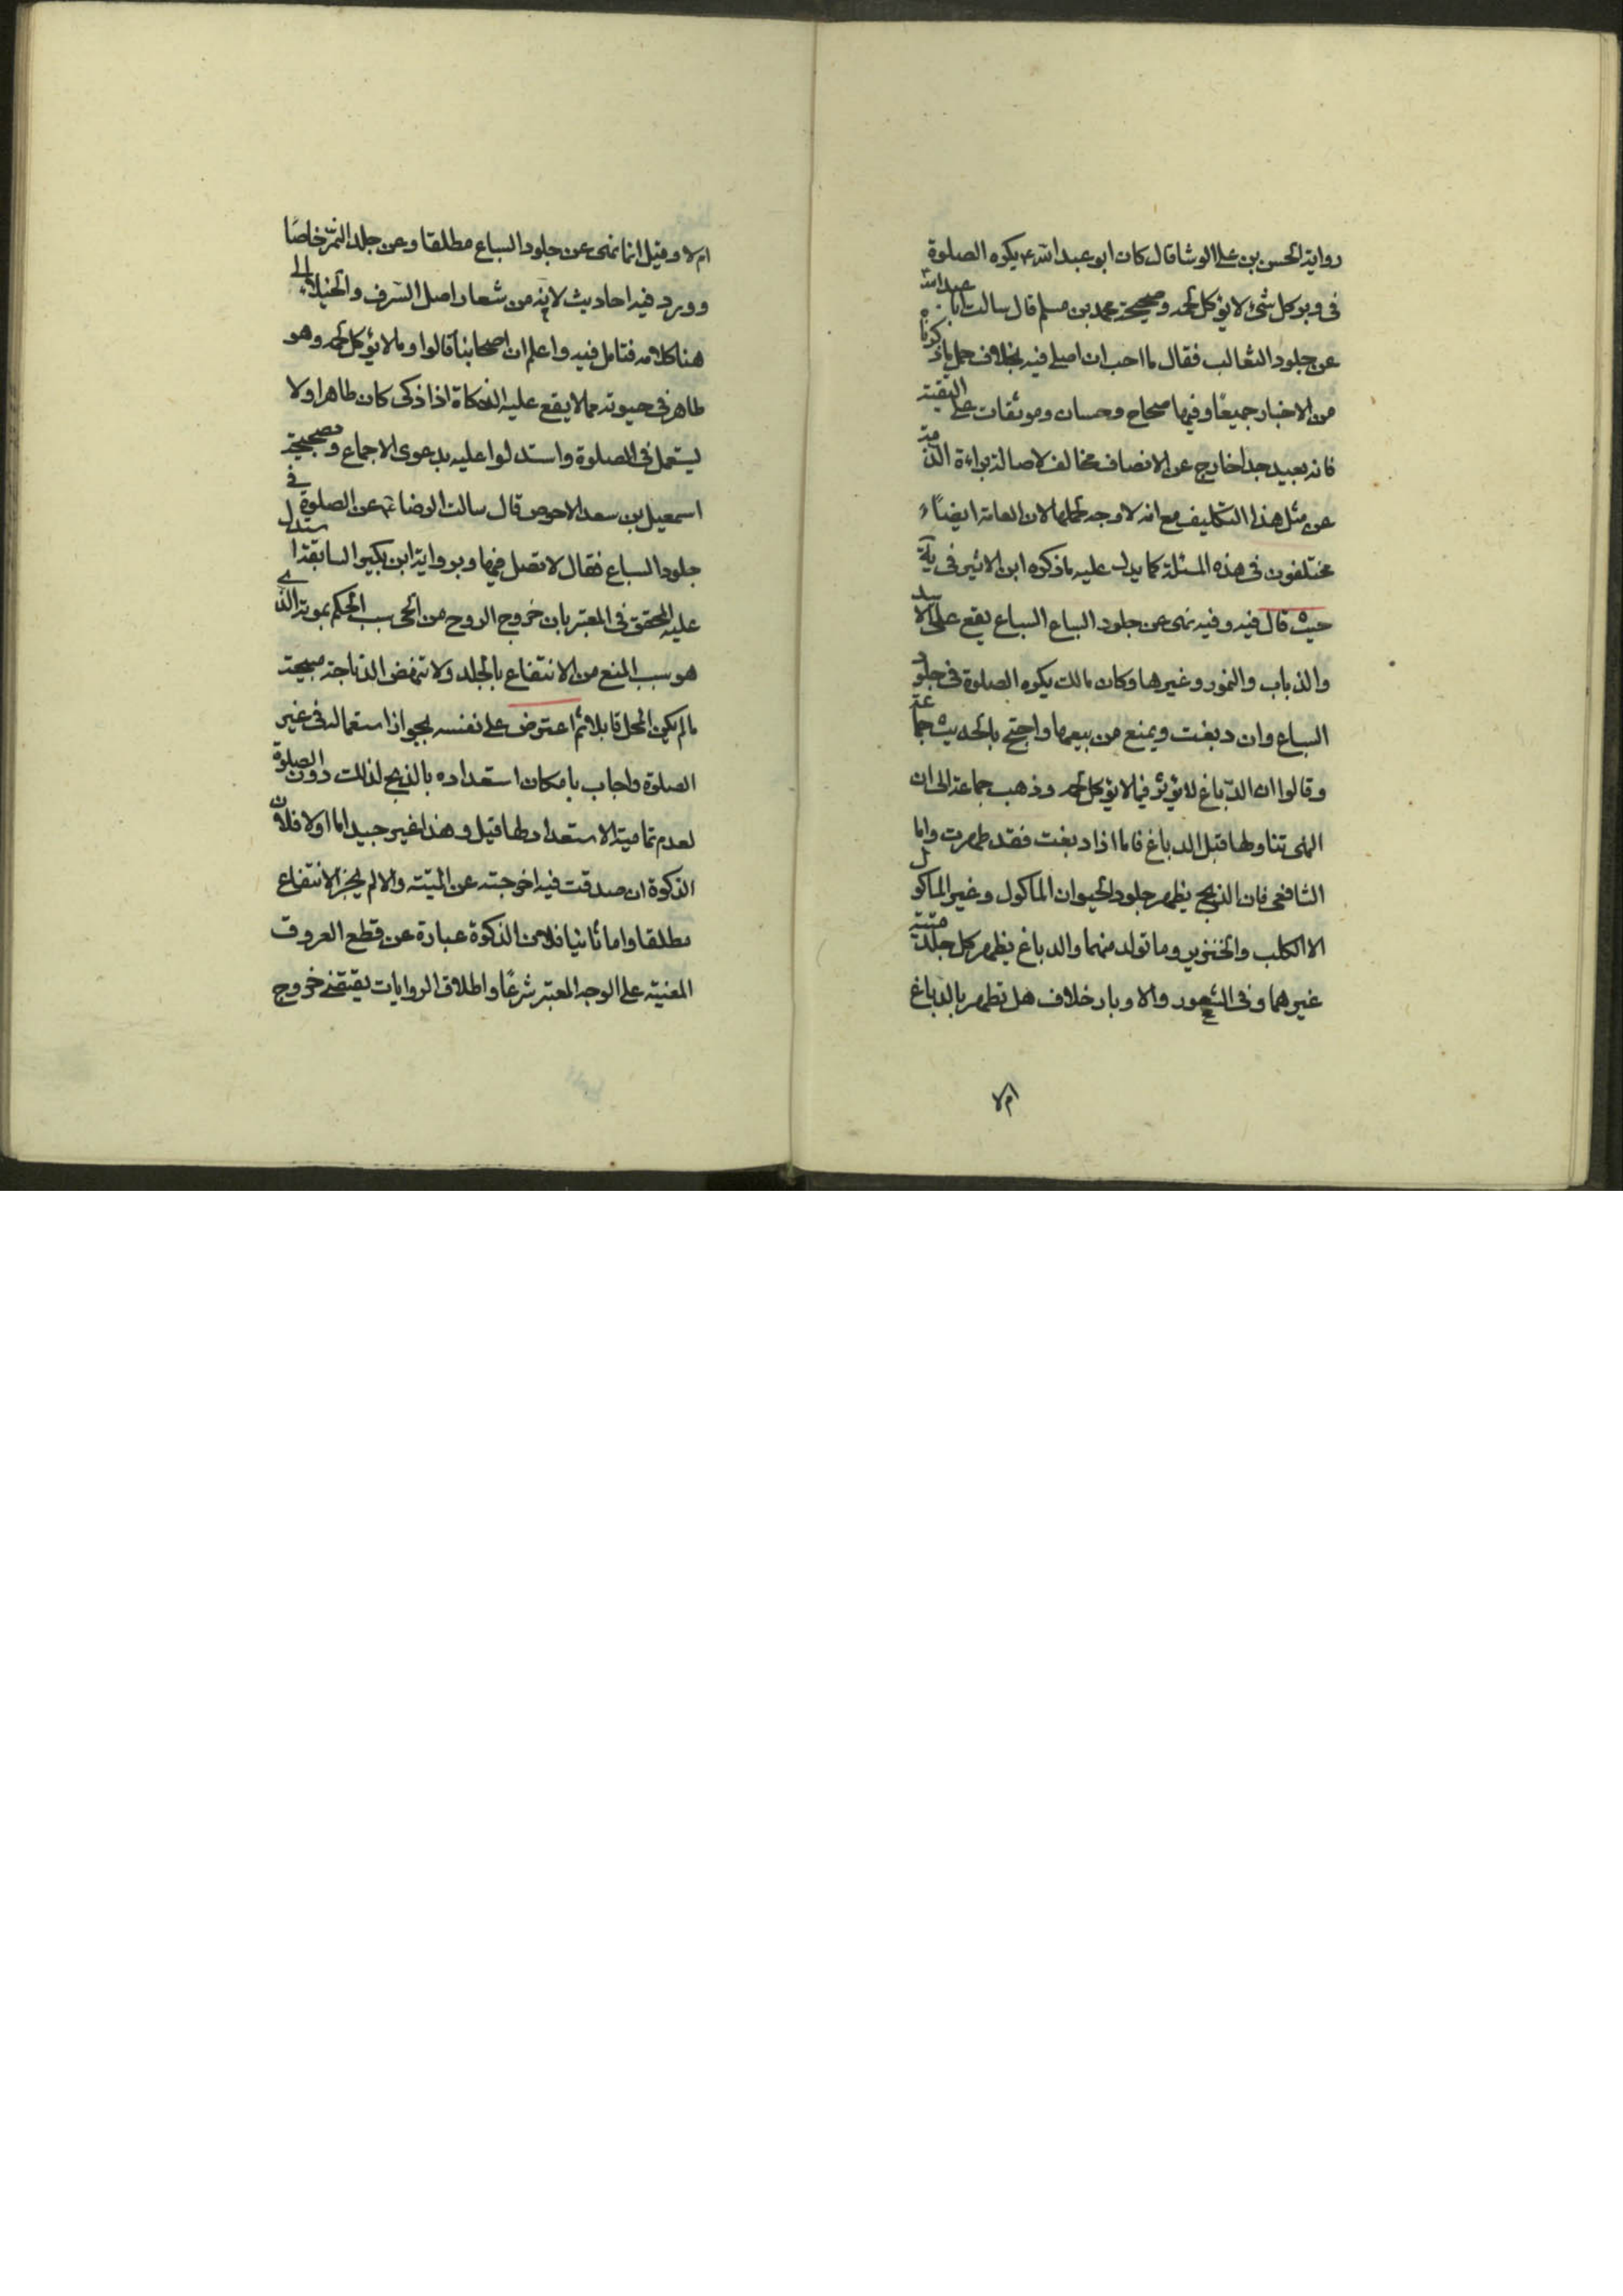 رواية الحسن بن علی الوشا قال كان ابو عبد الله ع يكره الصلوة
فی وبر كل شیء لا يؤكل لحمه و صحيحة محمد بن مسلم قال سالت ابا عبد الله
عن جلود الثعالب فقال ما احب ان اصلی فيه بخلاف حمل ما ذكرناه
من الاخبار جميعًا وفيها صحاح وحسان وموثقات علی التقية
فانه بعيد جدا خارج عن الانصاف مخالف لاصالة براءة الذمة
عن مثل هذا التكليف مع انه لا وجه لحملها لان العامة ايضًا
مختلفون فی هذه المسئلة كما يدل عليه ما ذكره ابن الاثير فی يه
حيث قال فيه وفيه نهی عن جلود السباع السباع يقع علی الاسد
والذباب والنمور وغيرها وكان مالك يكره الصلوة فی جلود
السباع وان دبغت ويمنع من بيعها واحتج بالحديث جماعة
وقالوا ان الدباغ لا يؤثر فيما لا يؤكل لحمه وذهب جماعة الی ان
النهی تناولها قبل الدباغ فاما اذا دبغت فقد طهرت واما
الشافعی فان الذبح يطهر جلود الحيوان الماكول وغير الماكول
الا الكلب والخنزير وما تولد منهما والدباغ يطهر كل جلد ميتة
غيرهما وفی الشعور والاوبار خلاف هل تطهر بالدباغ
ام لا
ام لا وقيل انما نهی عن جلود السباع مطلقا وعن جلد النمر خاصًا
وورد فيه احاديث لانه من شعار اهل السرف والخيلاء الی
هنا كلامه فتامل فيه واعلم ان اصحابنا قالوا وما لا يؤكل لحمه وهو
طاهر فی حيوته مما لا يقع عليه الذكاة اذا ذكی كان طاهرا ولا
يستعمل فی الصلوة واستدلوا عليه بدعوی الاجماع وصحيحة
اسمعيل بن سعد الاحوص قال سالت الرضا ع عن الصلوة فی
جلود السباع فقال لا تصل فيها وبرواية ابن بكير السابقة استدل
عليه المحقق فی المعتبر بان خروج الروح من الحی سبب الحكم بموته الذی
هو سبب المنع من الانتفاع بالجلد ولا تنهض الذباحة مبيحة
ما لم يكن المحل قابلا ثم اعترض علی نفسه بجواز استعماله فی غير
الصلوة واجاب بامكان استعداده بالذبح لذلك دون الصلوة
لعدم تمامية الاستعداد لها قيل وهذا غير جيد اما اولا فلان
الذكوة ان صدقت فيه اخرجته عن الميتة والا لم يجز الانتفاع
مطلقا واما ثانيا فلان الذكوة عبارة عن قطع العروق
المعنية علی الوجه المعتبر شرعًا واطلاق الروايات يقتضی خروج